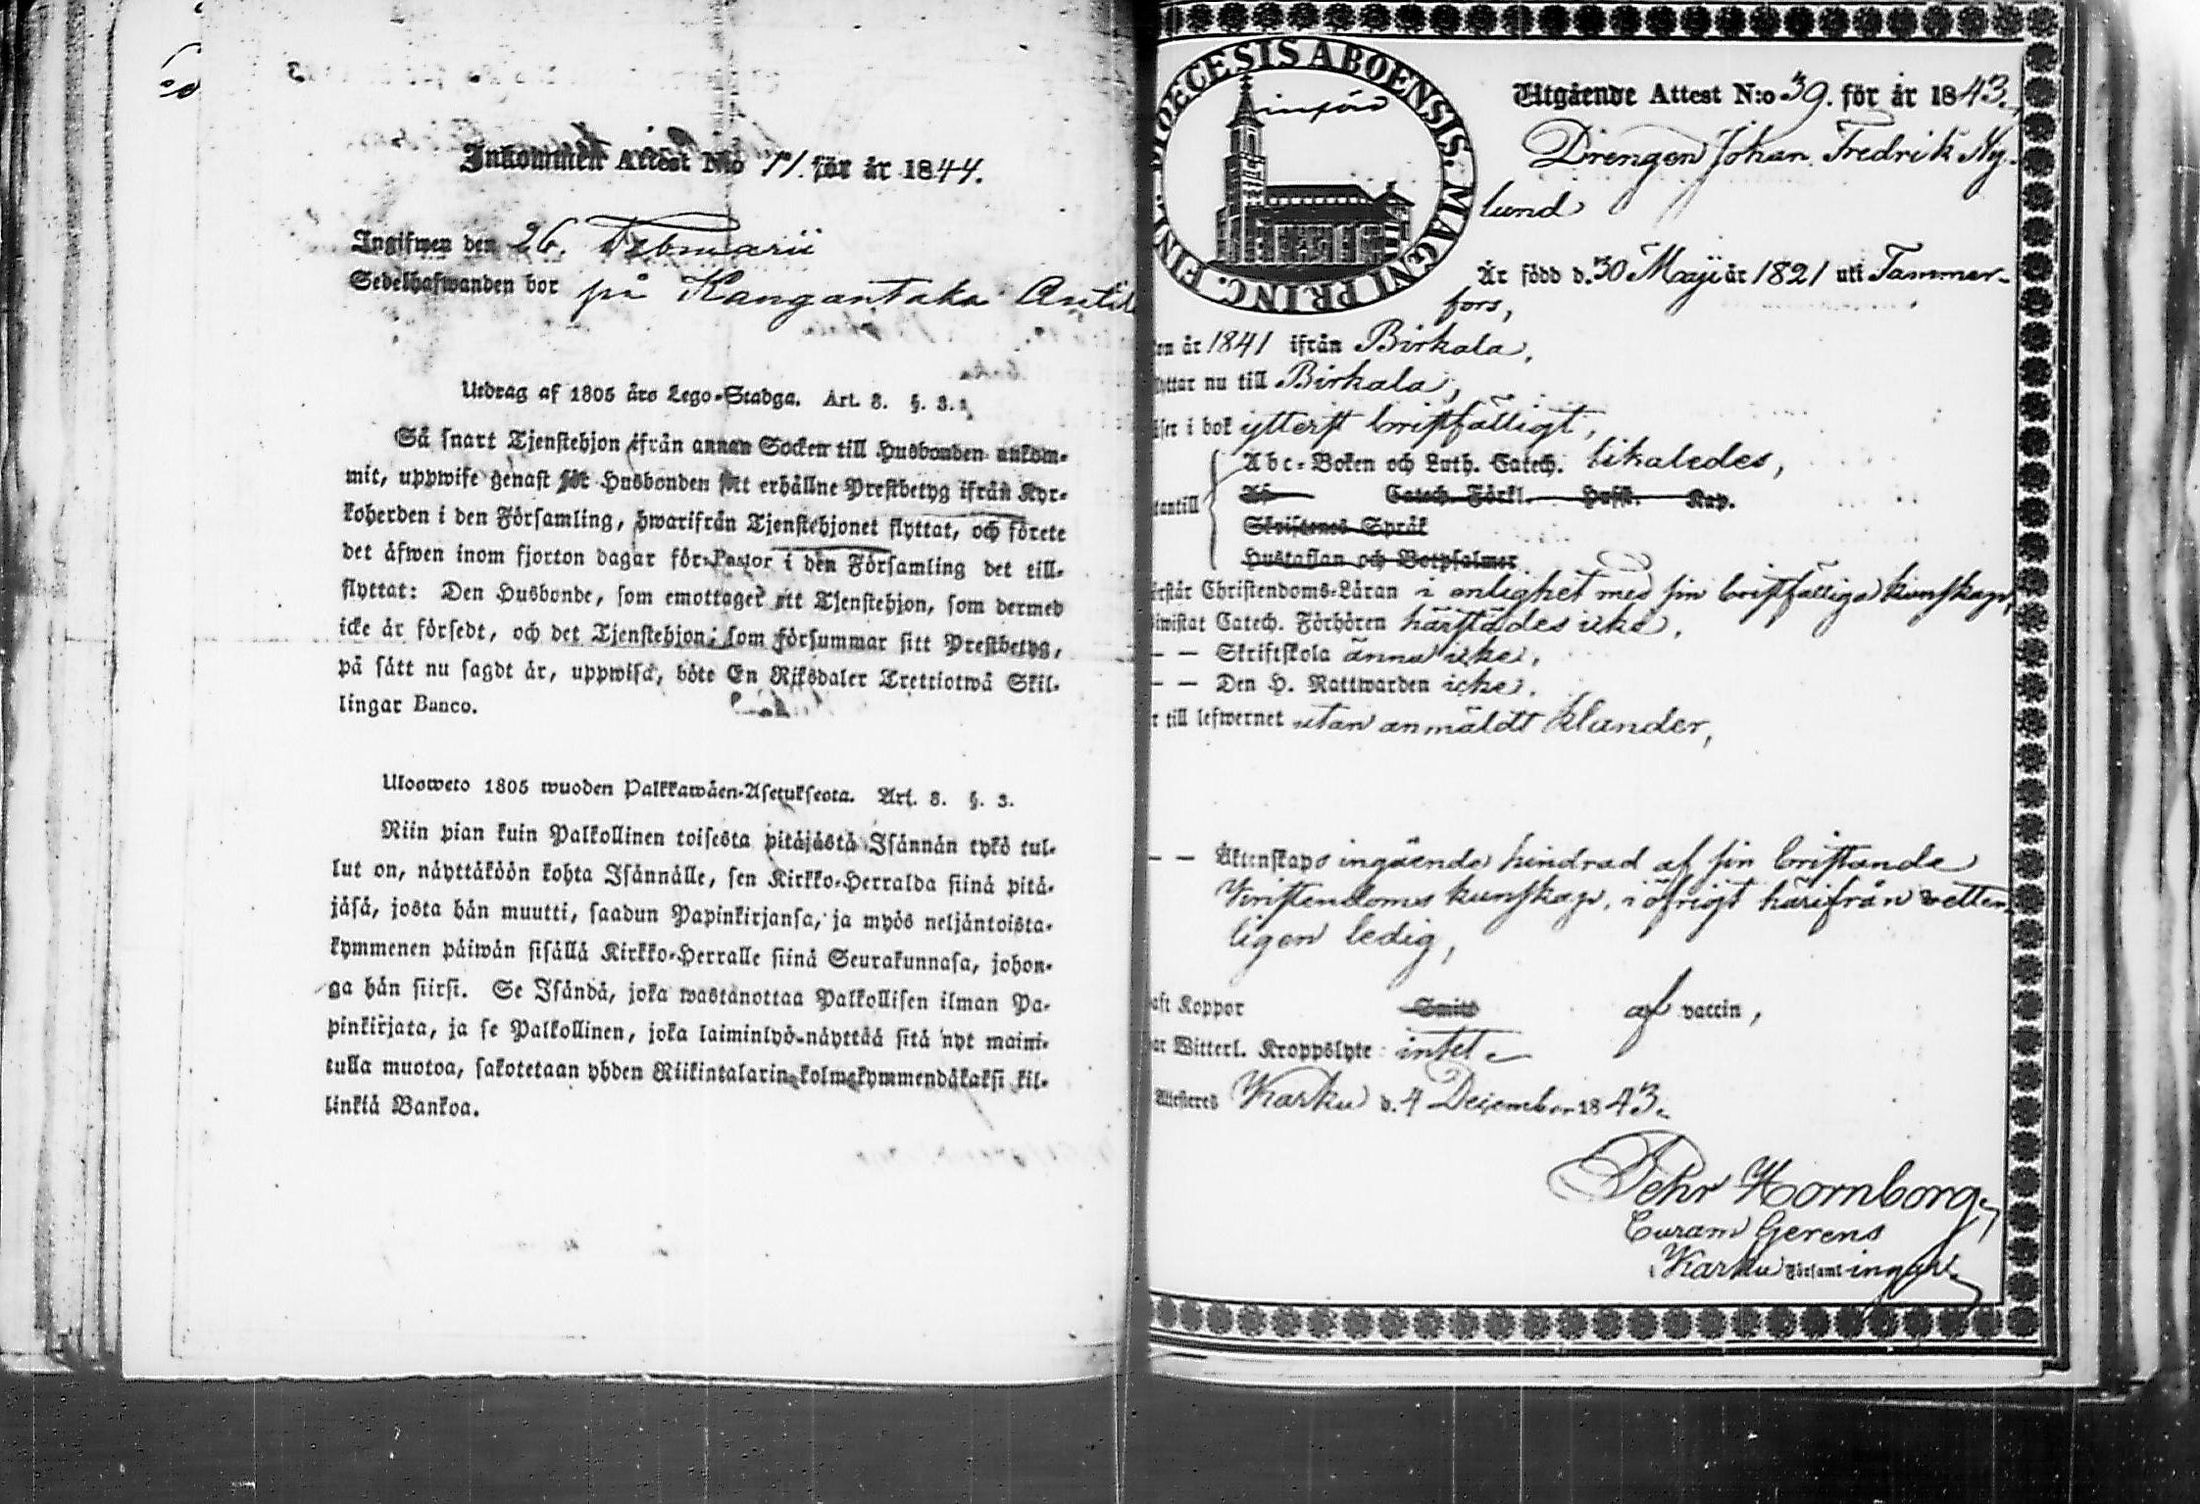 Inkommen Attest N:o 11. för år 1844.
Ingifwen den 26. Februarii
Sedelhafwanden bor på Kangantaka
Utdrag af 1805 års Lego-Stadga. Art. 8. §. 3.
Så snart Tjenstehjon ifrån annan Socken till Husbonden ankom-
mit, uppwise genast för Husbonden sitt erhållne Prestbetyg ifrån Kyr-
koherden i den Församling, hwarifrån Tjenstehjonet flyttat, och förete
det äfwen inom fjorton dagar för Pastor i den Församling det till-
flyttat: Den Husbonde, som emottager ett Tjenstehjon, som dermed
icke är försedt, och det Tjenstehjon, som försummar sitt Prestbetyg,
på sätt nu sagdt är, uppwisa, böte En Riksdaler Trettiotwå Skil-
lingar Banco.
Ulosweto 1805 wuoden Palkkawäen-Asetuksesta. Art. 8. §. 3.
Niin pian kuin Palkollinen toisesta pitäjästä Isännän tykö tul-
lut on, näyttäköön kohta Isännälle, sen Kirkko-Herralda siinä pitä-
jäsä, josta hän muutti, saadun Papinkirjansa, ja myös neljäntoista-
kymmenen päiwän sisällä Kirkko-Herralle siinä Seurakunnasa, johon-
ga hän siirsi. Se Isändä, joka wastanottaa Palkollisen ilman Pa-
pinkirjata, ja se Palkollinen, joka laiminlyö näyttää sitä nyt maini-
tulla muotoa, sakotetaan yhden Riikintalarin kolmekymmendäkaksi kil-
linkiä Bankoa.
DIOECESIS ABOENSIS. MAGNI PRINC. FINL.
införd
Utgående Attest N:o 39. för år 1843.
Drengen Johan Fredrik Ny-
lund
Är född d. 30 Maji år 1821 uti Tammer-
fors,
on år 1841 ifrån Birkala,
yttar nu till Birkala,
äser i bok ytterst bristfälligt,
Abc-Boken och Luth. Catech. likaledes,
tantill
Catech. Förkl. Hufst. Kap.
Skriftenes Språk
Hustaflan och Botpsalmer
erstår Christendoms-Läran i enlighet med sin bristfälliga kunskap,
iwistat Catech. Förhören härstädes icke,
— — Skriftskola ännu icke,
— — Den H. Nattwarden icke.
r till lefwernet utan anmäldt klander,
— — Äktenskaps ingående hindrad af sin bristande
Kristendoms kunskap, i öfrigt härifrån wetter-
ligen ledig,
aft Koppor Smitt af vaccin,
ar Witterl. Kroppslyte intet
Attesteres Karku d. 4 December 1843.
Pehr Hornborg,
Curam Gerens
i Karku Församl ing